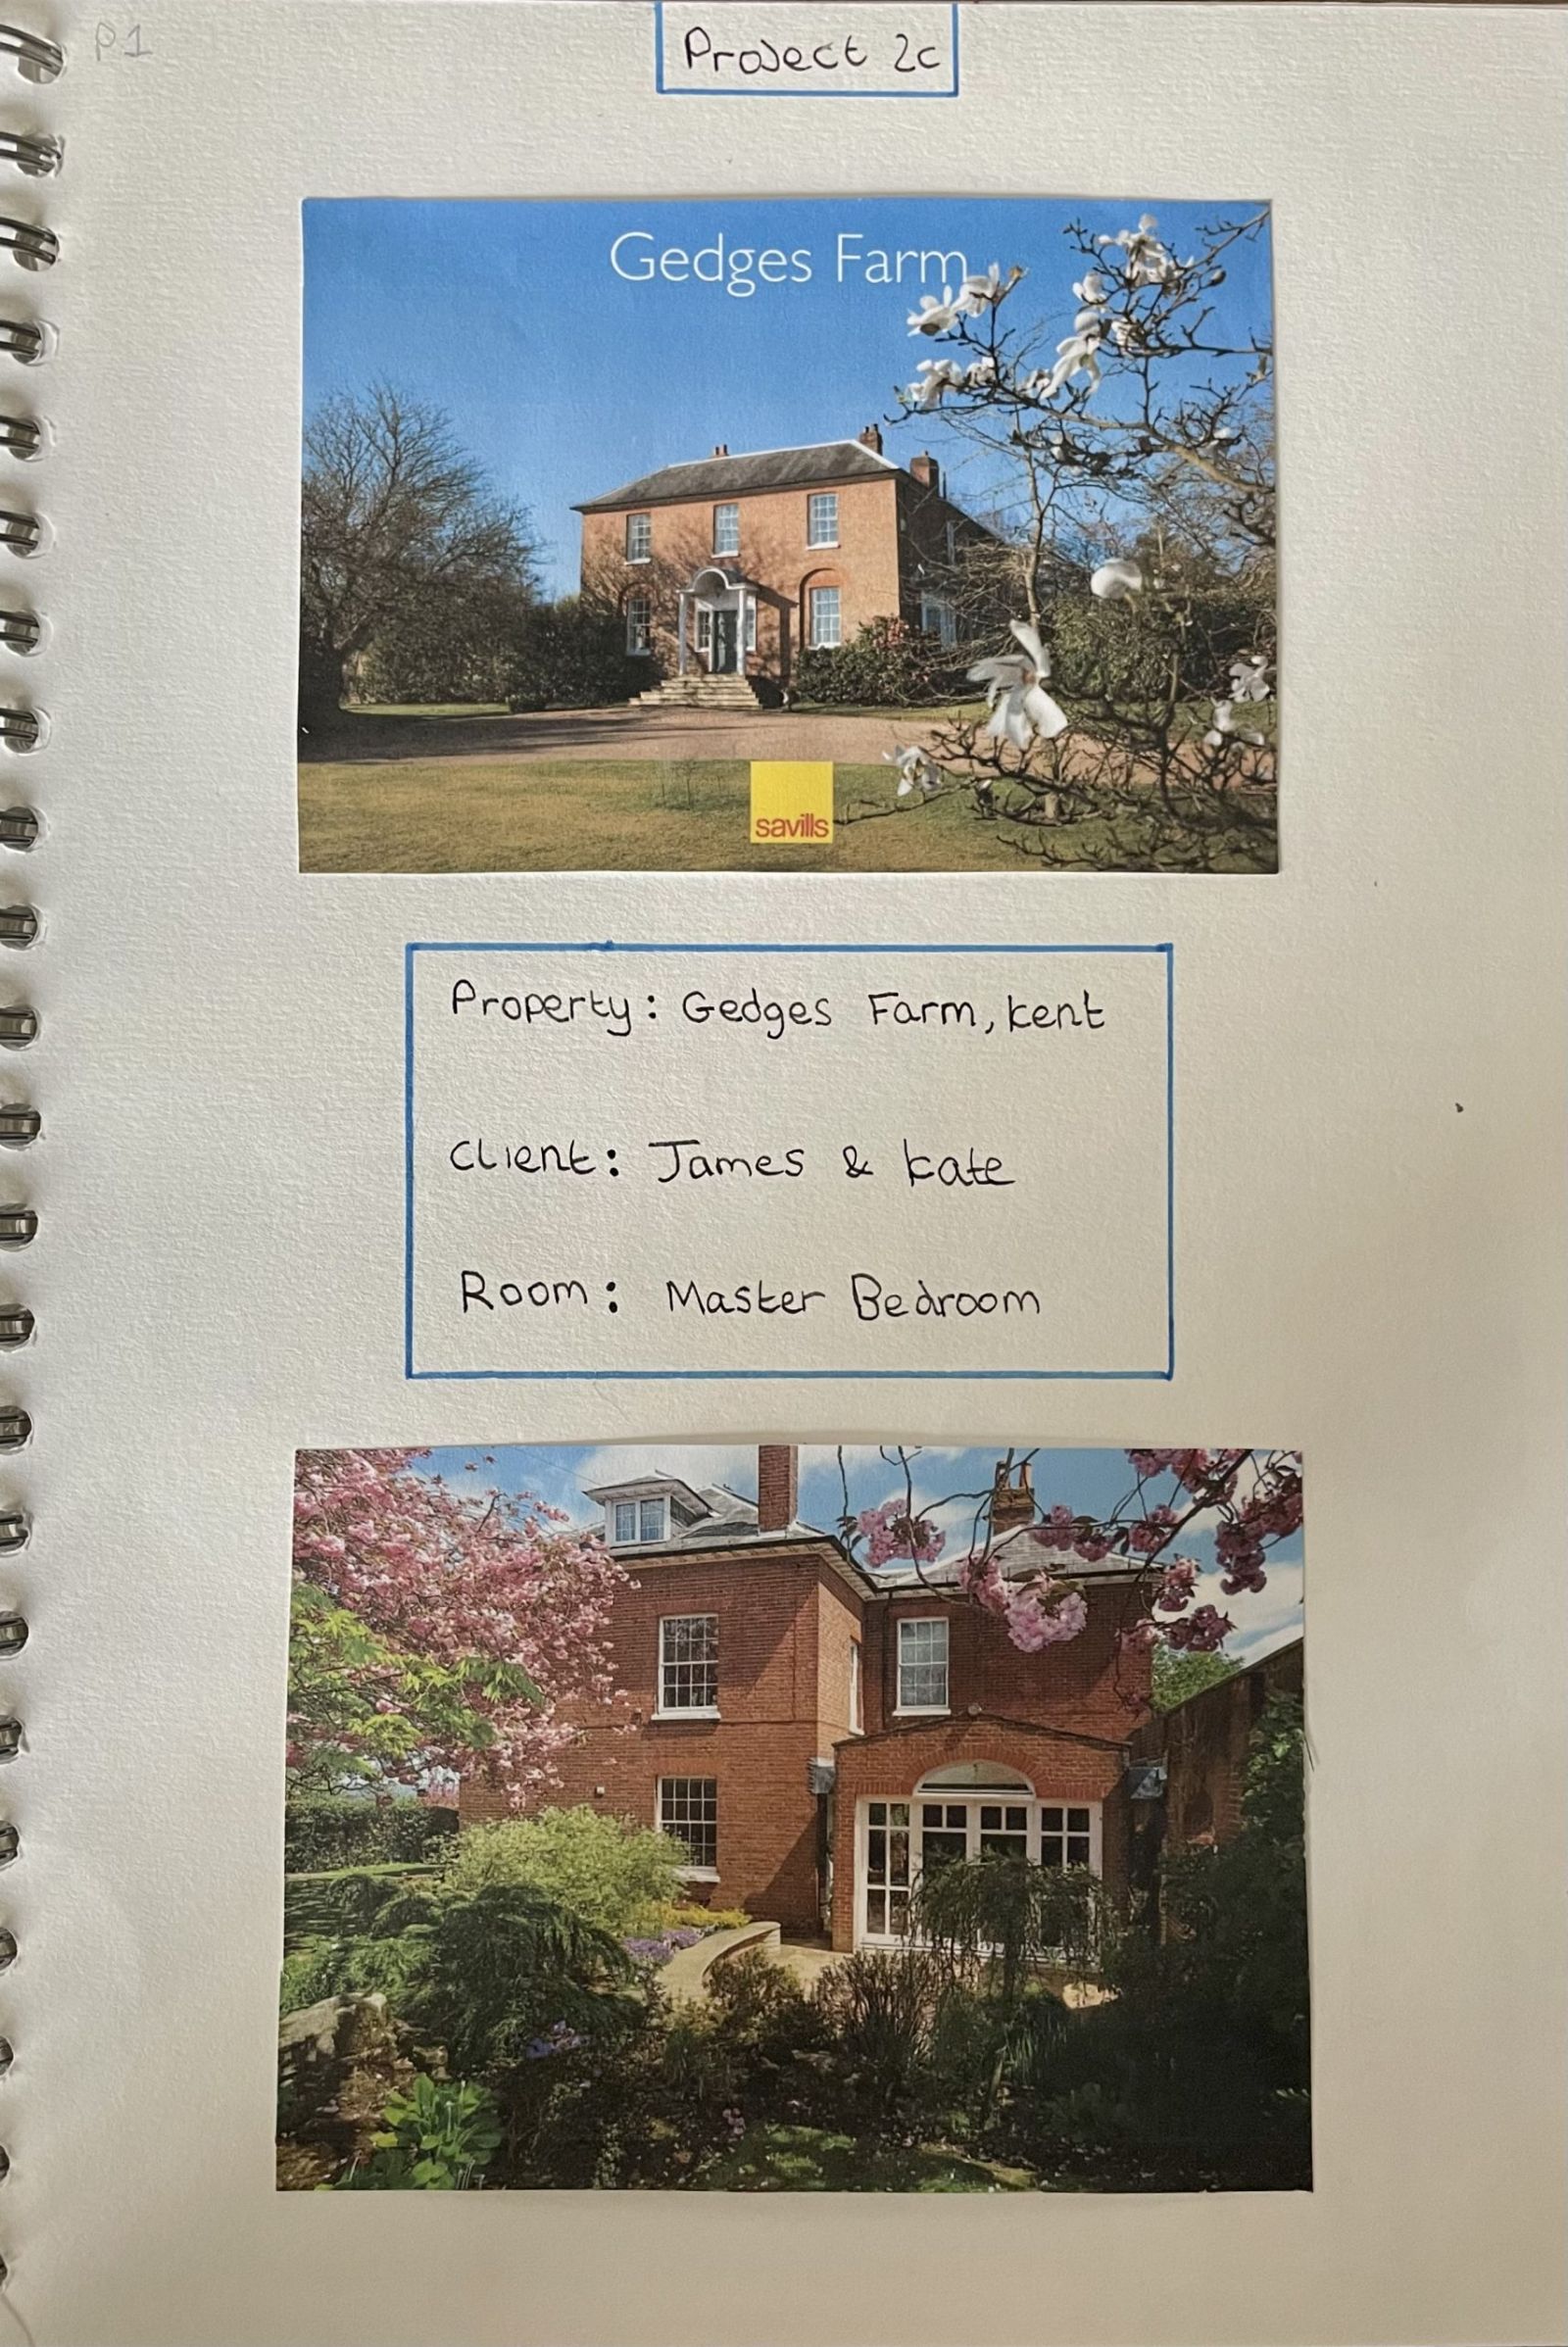 P1
Project 2c
Gedges Farm
savills
Property: Gedges Farm, Kent
Client: James & Kate
Room: Master Bedroom